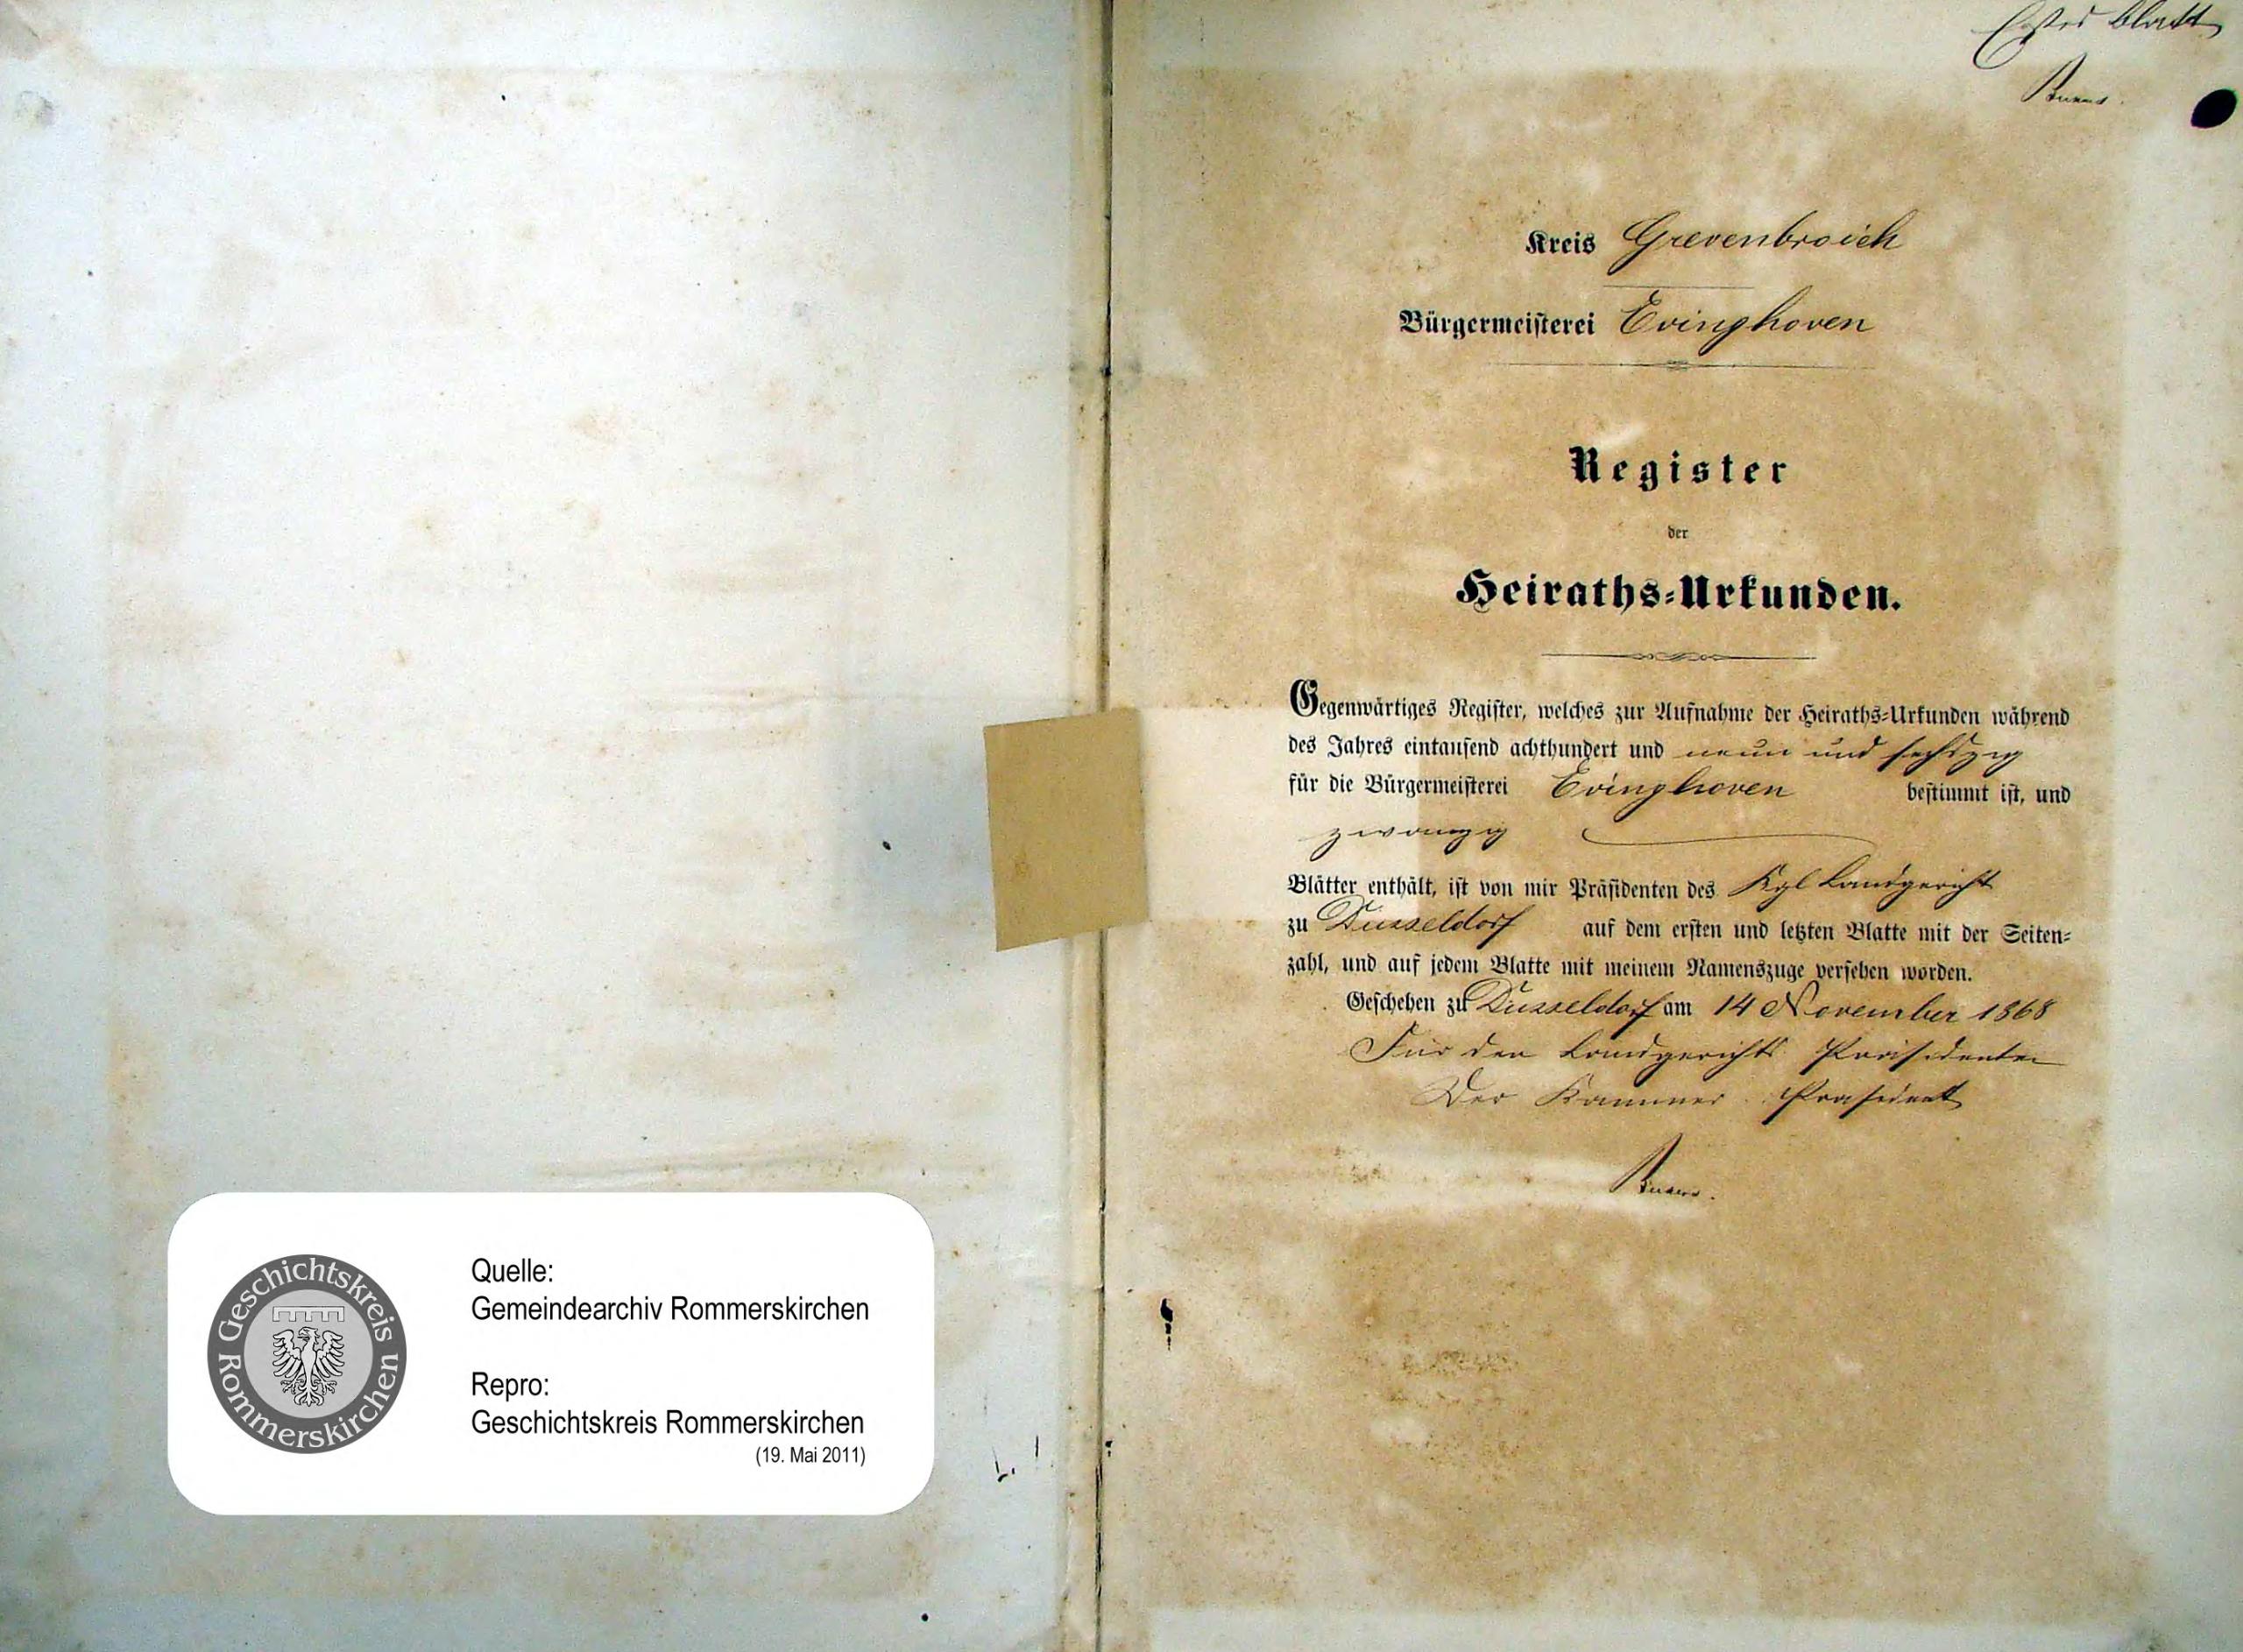 Geschichtskreis Rommerskirchen
Quelle:
Gemeindearchiv Rommerskirchen
Repro:
Geschichtskreis Rommerskirchen
(19. Mai 2011)
Erstes Blatt
Kreis Grevenbroich
Bürgermeisterei Evinghoven
Register
der
Heiraths-Urkunden.
Gegenwärtiges Register, welches zur Aufnahme der Heiraths-Urkunden während
des Jahres eintausend achthundert und neun und sechszig
für die Bürgermeisterei Evinghoven bestimmt ist, und
zwanzig
Blätter enthält, ist von mir Präsidenten des Kgl Landgericht
zu Düsseldorf auf dem ersten und letzten Blatte mit der Seiten-
zahl, und auf jedem Blatte mit meinem Namenszuge versehen worden.
Geschehen zu Düsseldorf am 14 November 1868
Für den Landgerichts Präsidenten
Der Kammer Präsident